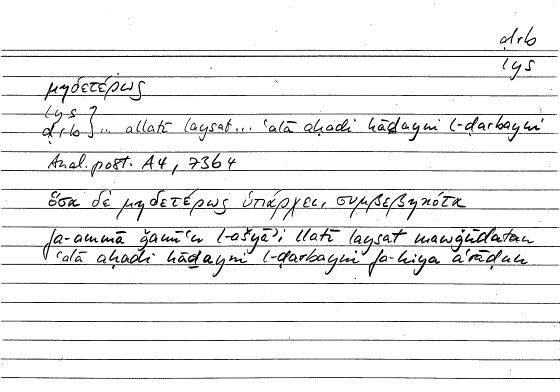 ḍrb
lys
μηδετέρως
lys
ḍrb } ... allatī laysat ... ʿalā aḥadi hāḏayni l-ḍarbayni
Anal. post. A4, 73b4
ὅσα δὲ μηδετέρως ὑπάρχει, συμβεβηκότα
fa-ammā ǧamīʿu l-ašyāʾi llatī laysat mawǧūdatan
ʿalā aḥadi hāḏayni l-ḍarbayni fa-hiya aʿrāḍun